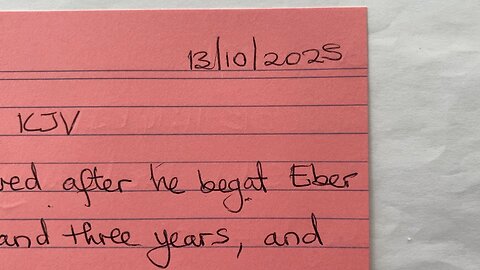 13/10/2025
KJV
ved after he begat Eber
and three years, and